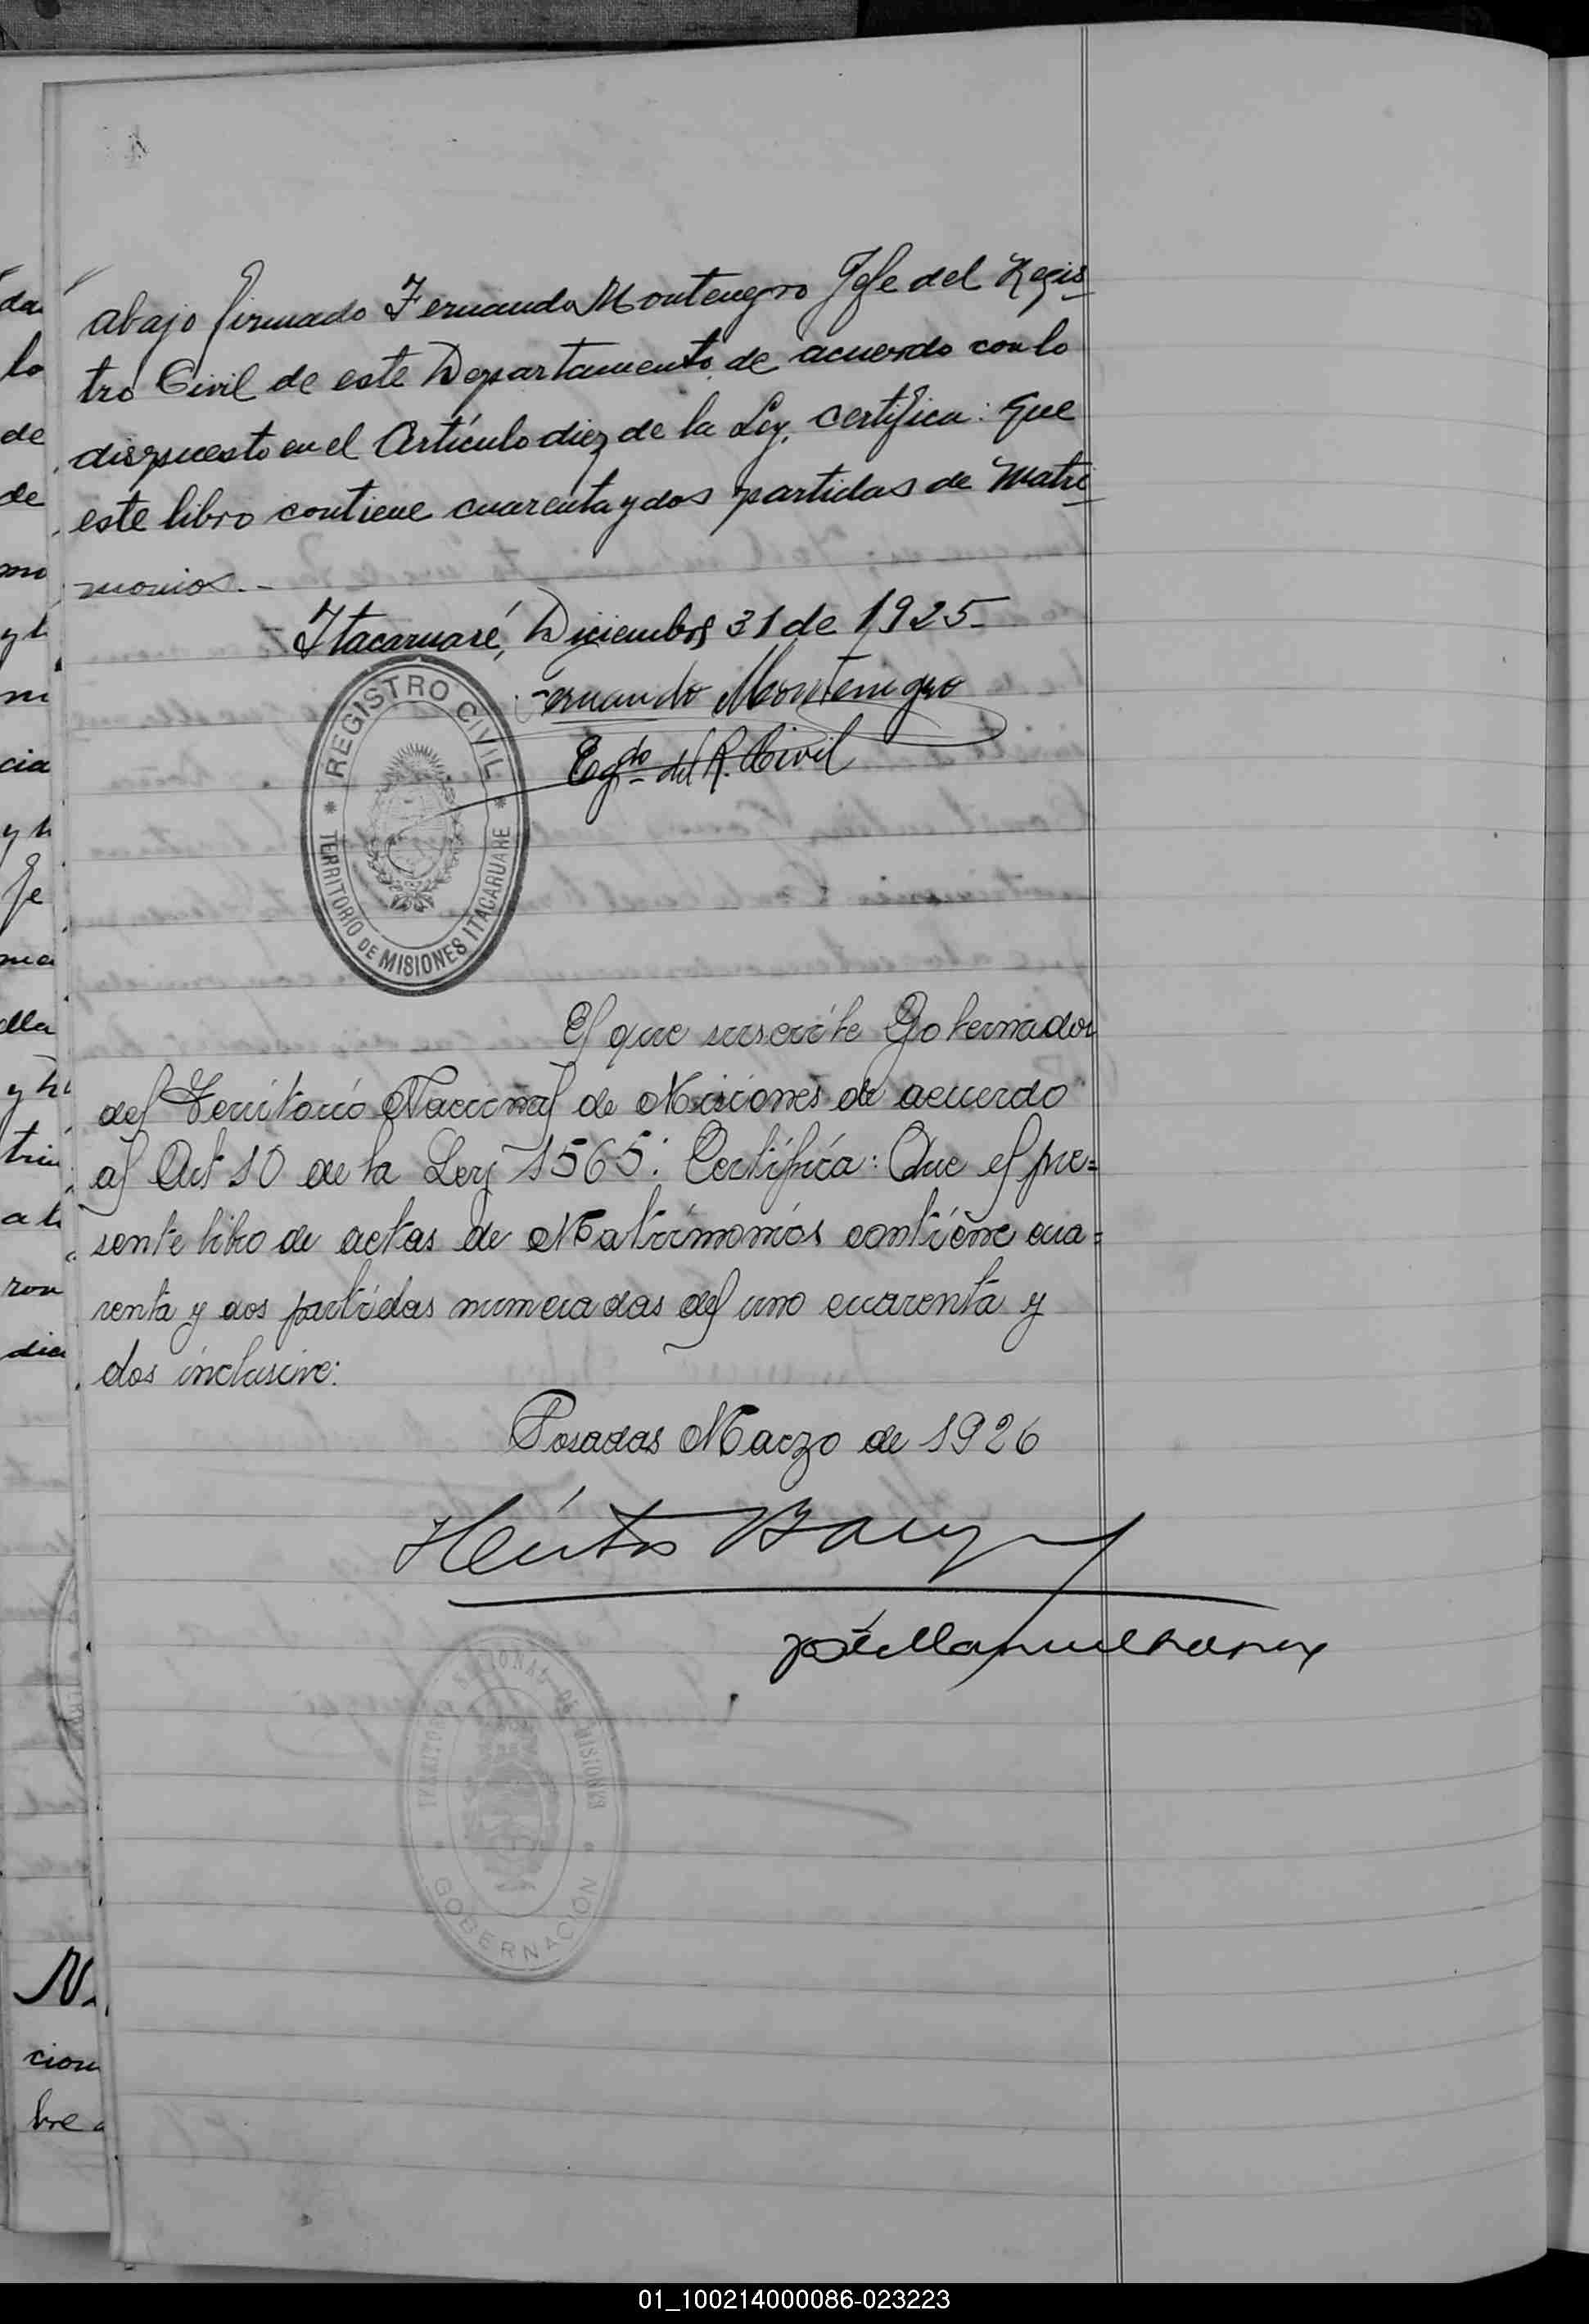 abajo firmado Fernando Montenegro Jefe del Regis
tro Civil de este Departamento de acuerdo con lo
dispuesto en el Artículo diez de la Ley, certifica: que
este libro contiene cuarenta y dos partidas de Matri
monios.-
Itacaruaré, Diciembre 31 de 1925-
Fernando Montenegro
Egdo del R. Civil
* REGISTRO CIVIL *
TERRITORIO DE MISIONES ITACARUARE
El que suscribe Gobernador
del Territorio Nacional de Misiones de acuerdo
al Art 10 de la Ley 1565: Certifica: Que el pre=
sente libro de actas de Matrimonios contiene cua=
renta y dos partidas numeradas del uno cuarenta y
dos inclusive:
Posadas Marzo de 1926
Héctor
José Manuel
TERRITORIO NACIONAL DE MISIONES
GOBERNACIÓN
da
lo
de
de
mo
y h
ni
cia
y h
Je
ma
lla
y hi
tri
a h
ron
dia
N.
cion
bre a
01_100214000086-023223